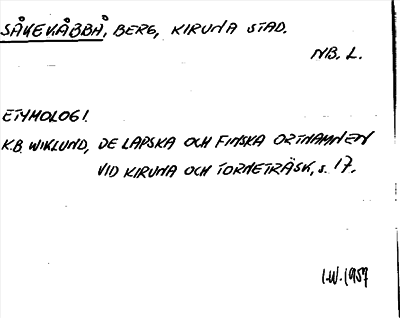 SÅKEVÅBBÅ, BERG, KIRUNA STAD.
NB. L.
ETYMOLOGI.
K.B. WIKLUND, DE LAPSKA OCH FINSKA ORTNAMNEN
VID KIRUNA OCH TORNETRÄSK, s. 17.
I.W. 1957